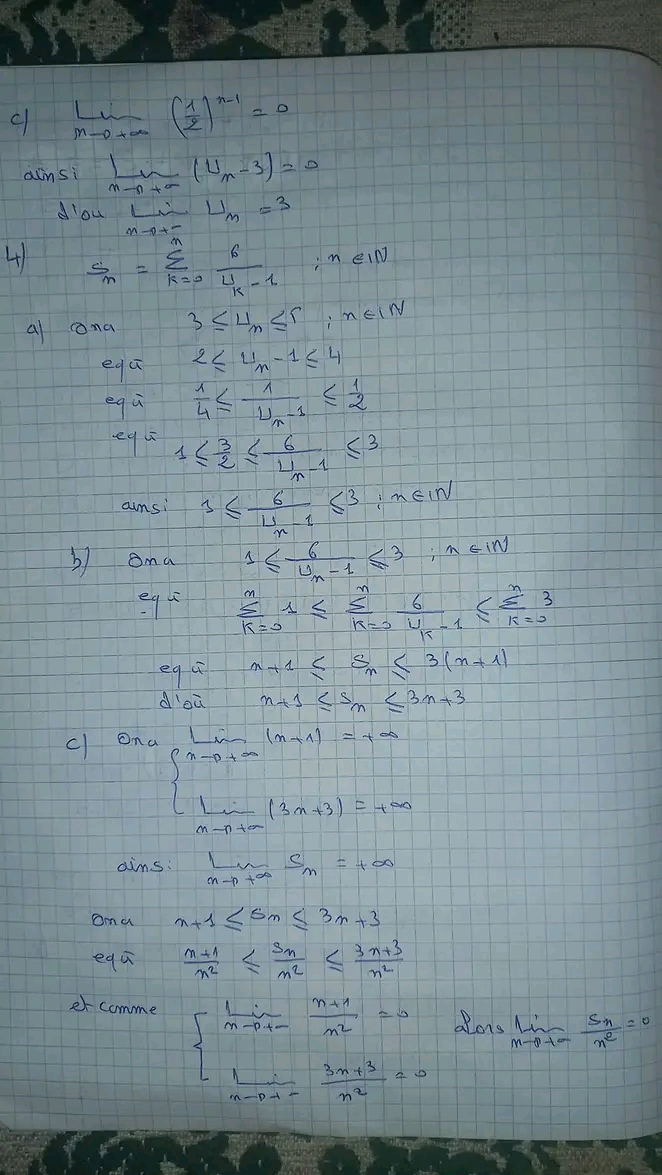 c) Lim n→+∞ (1/2)^(n-1) = 0
ainsi Lim n→+∞ (Un - 3) = 0
d'où Lim n→+∞ Un = 3
4) Sn = Σ k=0 n 6/(Uk - 1) ; n ∈ IN
a) Ona 3 ≤ Un ≤ 5 ; n ∈ IN
equi 2 ≤ Un - 1 ≤ 4
equi 1/4 ≤ 1/(Un - 1) ≤ 1/2
equi 1 ≤ 3/2 ≤ 6/(Un - 1) ≤ 3
ainsi 1 ≤ 6/(Un - 1) ≤ 3 ; n ∈ IN
b) Ona 1 ≤ 6/(Un - 1) ≤ 3 ; n ∈ IN
equi Σ k=0 n 1 ≤ Σ k=0 n 6/(Uk - 1) ≤ Σ k=0 n 3
equi n+1 ≤ Sn ≤ 3(n+1)
d'où n+1 ≤ Sn ≤ 3n+3
c) Ona { Lim n→+∞ (n+1) = +∞
Lim n→+∞ (3n+3) = +∞
ainsi Lim n→+∞ Sn = +∞
Ona n+1 ≤ Sn ≤ 3n+3
equi (n+1)/n² ≤ Sn/n² ≤ (3n+3)/n²
et comme { Lim n→+∞ (n+1)/n² = 0 Alors Lim n→+∞ Sn/n² = 0
Lim n→+∞ (3n+3)/n² = 0